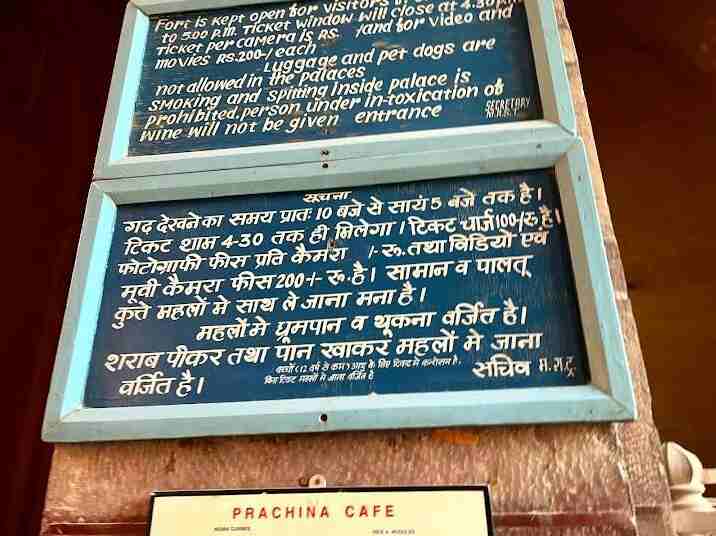 Fort is kept open for visitors
to 5:00 P.M. Ticket window will close at 4.30 P.M
Ticket per camera is RS. /and for video and
movies RS.200-/each
Luggage and pet dogs are
not allowed in the palaces
smoking and spitting inside palace is
prohibited, person under in-toxication of
wine will not be given entrance
SECRETARY
सूचना
गढ़ देखने का समय प्रातः 10 बजे से सायं 5 बजे तक है।
टिकट शाम 4-30 तक ही मिलेगा। टिकट चार्ज 100/-रु है।
फोटोग्राफी फीस प्रति कैमरा /- रू. तथा विडियो एवं
मूवी कैमरा फीस 200+- रू. है। सामान व पालतू
कुत्ते महलों मे साथ ले जाना मना है।
महलों मे ध्रूमपान व थूकना वर्जित है।
शराब पीकर तथा पान खाकर महलों मे जाना
वर्जित है।
बच्चों (12 वर्ष से कम) आयु के लिए टिकट में कन्सेसन है,
बिना टिकट महलों में आना वर्जित है
सचिव म.रा.ट्र
PRACHINA CAFE